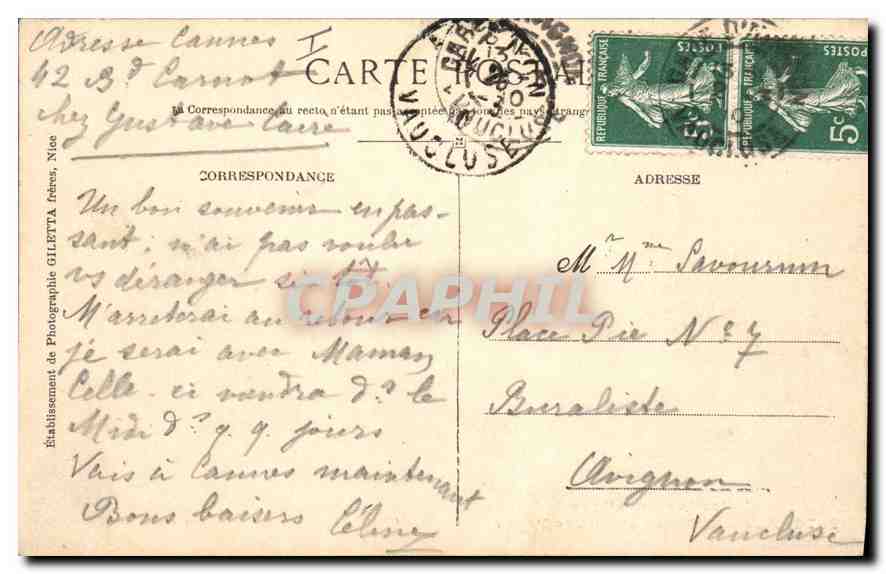 Adresse Cannes
42 Bd Carnot
chez Gustave Caire
CARTE POSTALE
La Correspondance au recto n'étant pas acceptée par tous les pays étrangers
RÉPUBLIQUE FRANÇAISE
POSTES
RÉPUBLIQUE FRANÇAISE
POSTES
5c
VAUCLUSE
CORRESPONDANCE
Un bon souvenir en pas-
sant; n'ai pas voulu
vs déranger si tôt.
M'arreterai au retour en
je serai avec Maman,
Celle-ci viendra ds le
Midi ds q. q. jours
Vais à Cannes maintenant
Bons baisers Céline
ADRESSE
Mr Mme Savournin
Place Pie No 7
Buraliste
Avignon
Vaucluse
Établissement de Photographie GILETTA frères, Nice
CPAPHIL